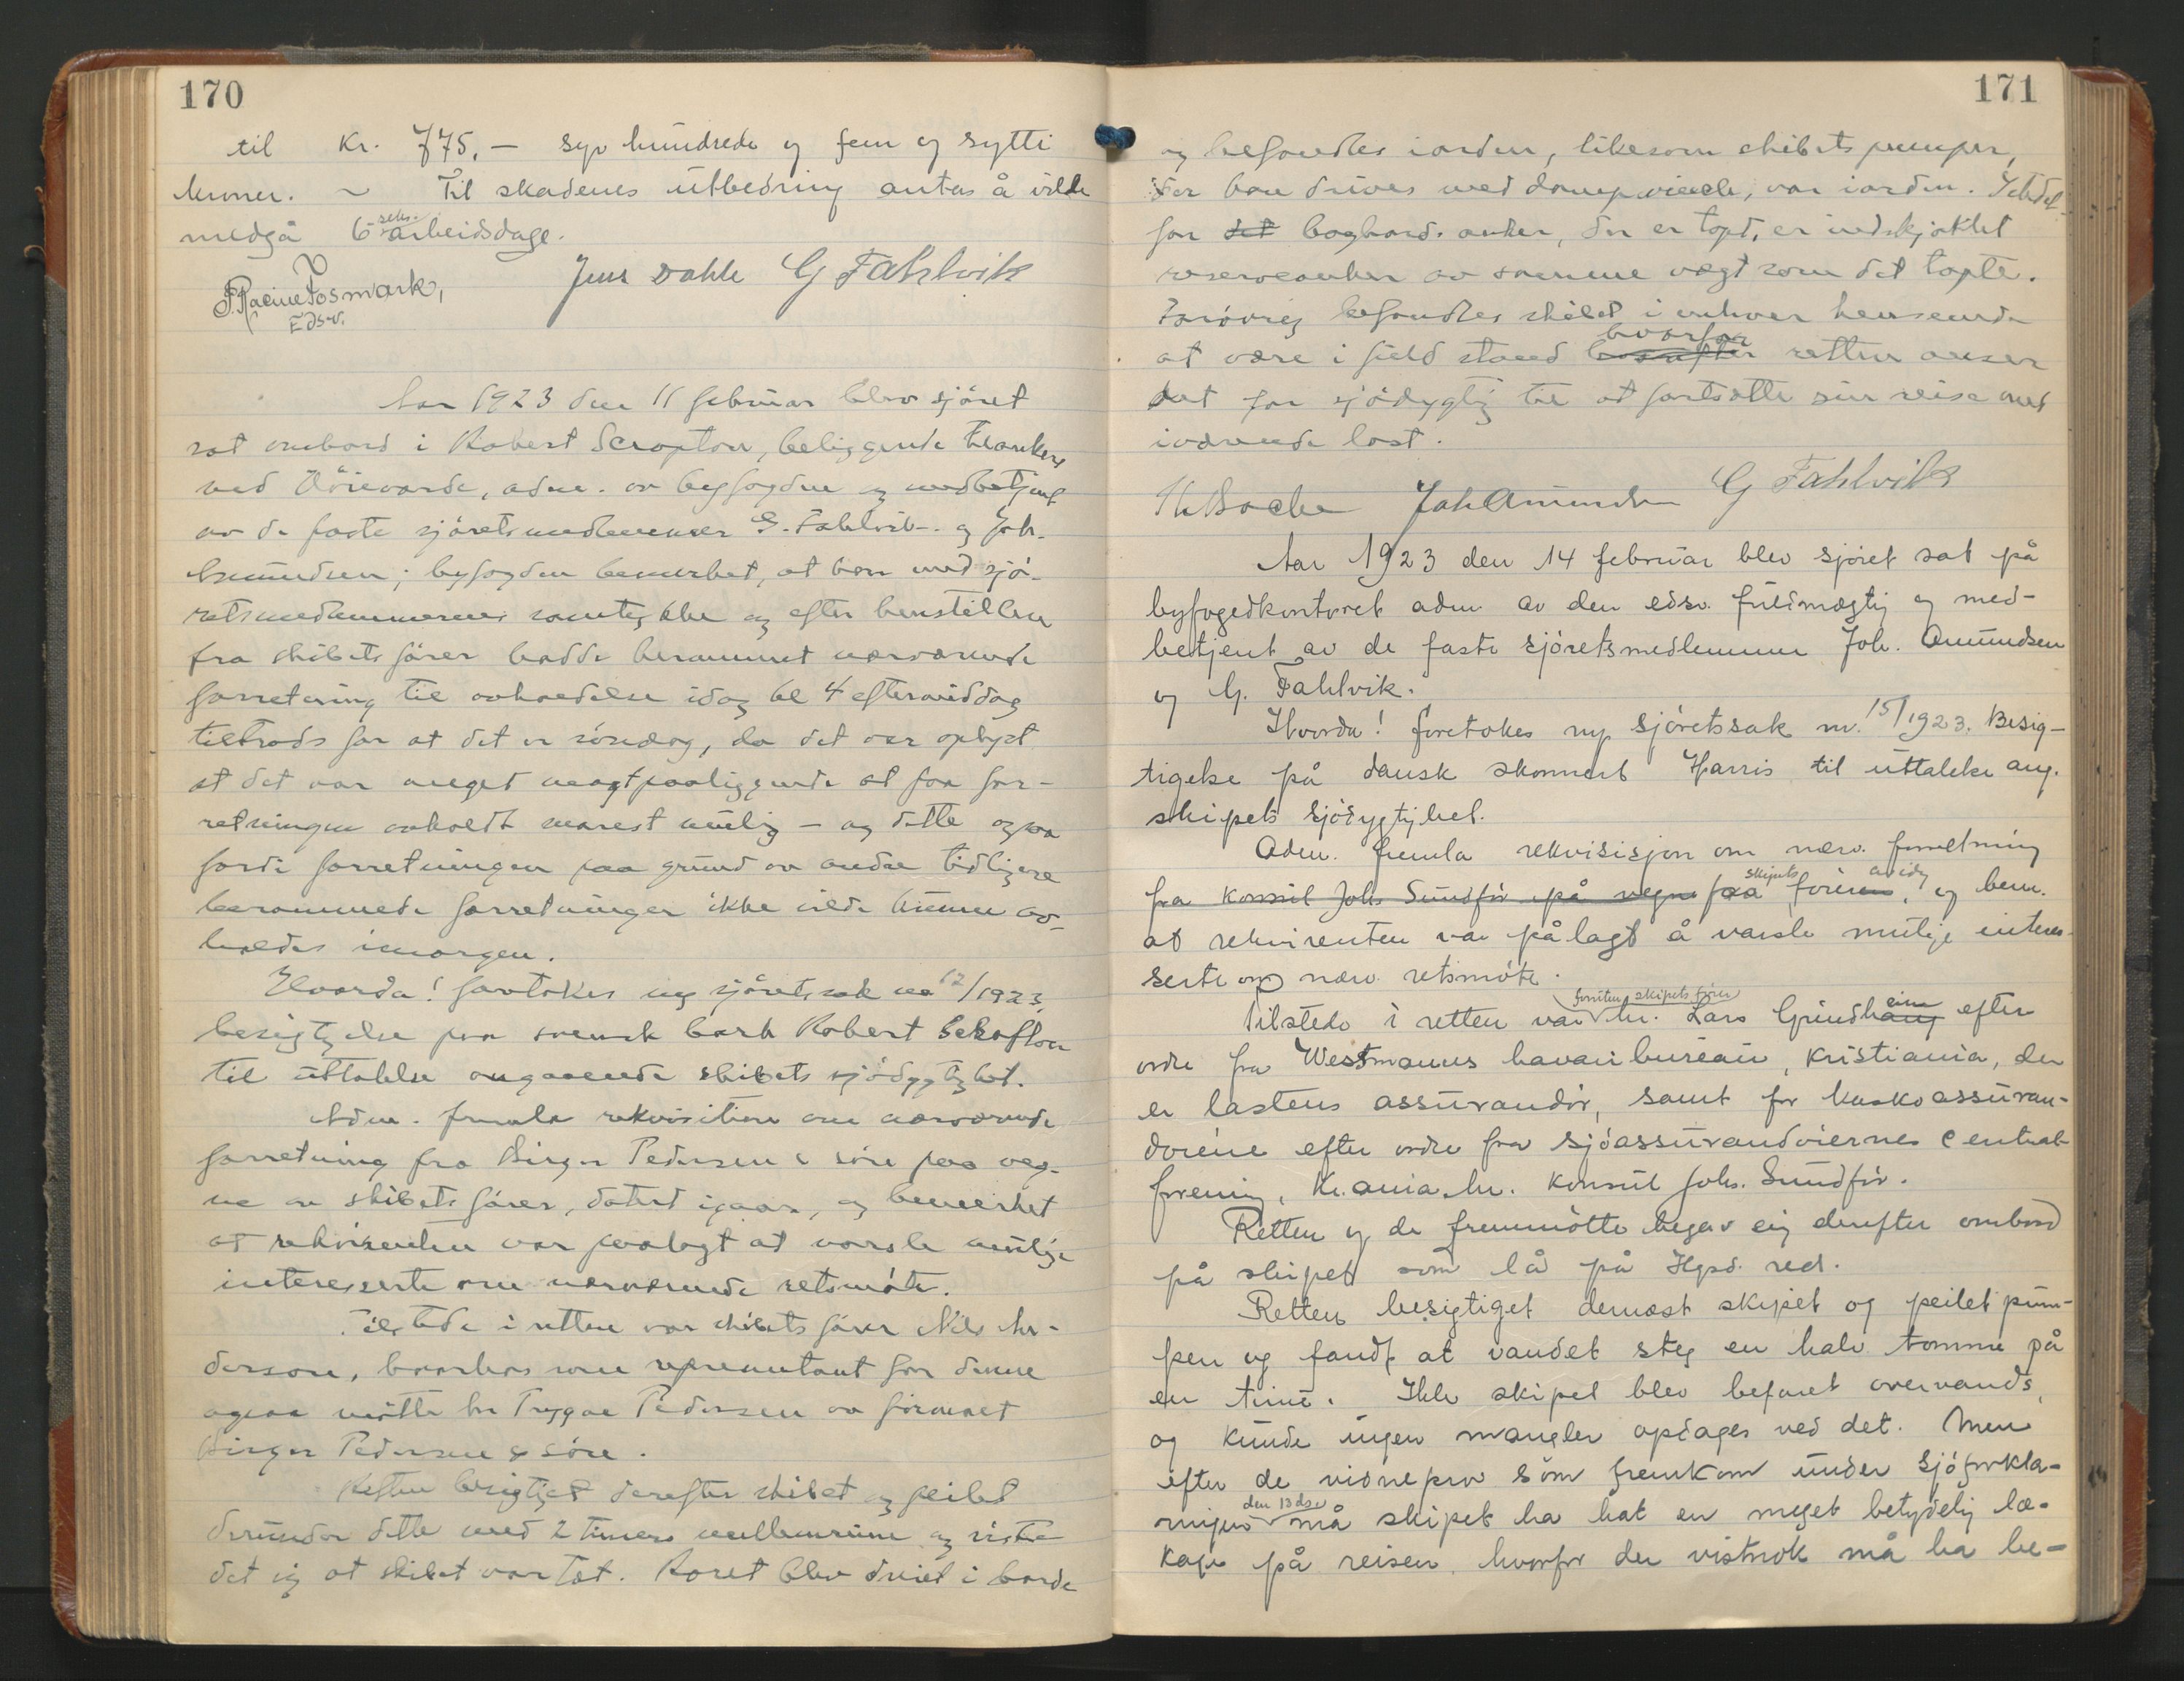 170
til kr. 775,— syv hundrede og fem og sytti
kroner. ~ Til skadenes utbedring antas å ville
medgå 6 seks- arbeidsdage.
Jens Dahle G Fahlvik
P. Racine Fosmark,
Edsv.
Aar 1923 den 11 februar blev sjøret
sat ombord i Robert Scrafton, beliggende tilankers
ved Høievarde, adm. av byfogden og medbetjent
av de faste sjøretsmedlemmer G. Fahlvik og Joh.
Amundsen; byfogden bemerket, at han med sjø-
retsmedlemmernes samtykke og efter henstillen
fra skibets fører hadde berammet nærværende
forretning til avholdelse idag kl 4 eftermiddag
tiltrods for at det er søndag, da det var oplyst
at det var meget magtpaaliggende at faa for-
retningen avholdt snarest mulig — og dette ogsaa
fordi forretningen paa grund av andre tidligere
berammede forretninger ikke vilde kunne av-
holdes imorgen.
Hvorda! foretokes ny sjøretssak no 12/1923,
besigtigelse paa svensk bark Robert Scrafton
til uttalelse angaaende skibets sjødygtighet.
Adm. fremla rekvisition om nærværende
forretning fra Birger Pedersen & søn paa veg-
ne av skibets fører, datert igaar, og bemerket
at rekvirenten var paalagt at varsle mulige
interesserte om nærværende retsmøte.
Tilstede i retten var skibets fører Nils An-
dersson, hvorhos som representant for denne
ogsaa møtte hr Trygve Pedersen av firmaet
Birger Pedersen & søn.
Retten besigtiget derefter skibet og peilet
derunder dette med 2 timers mellemrum og viste
det sig at skibet var tæt. Roret blev dreiet i borde
171
og befandtes iorden, likesom skibets pumper,
der kan drives med dampvinch, var iorden. Istedet-
for det bagbords anker, der er tapt, er indskjaklet
reserveanker av samme vægt som det tapte.
Forøvrig befandtes skibet i enhver henseende
at være i fuld stand hvorefter hvorfor retten anser
det for sjødygtig til at fortsætte sin reise med
iværende last.
Joh Amundsen G Fahlvik
Aar 1923 den 14 februar blev sjøret sat på
byfogedkontoret adm. av den edsv. fuldmægtig og med-
betjent av de faste sjøretsmedlemmer Joh. Amundsen
og G. Fahlvik.
Hvorda! foretokes ny sjøretssak nr. 15/1923. Besig-
tigelse på dansk skonnert Harris til uttalelse ang.
skipets sjødygtighet.
Adm. fremla rekvisisjon om nærv. forretning
fra konsul Johs Sundfør på vegne fra skipets føreren, avidg og bem.
at rekvirenten var pålagt å varsle mulige interes-
serte om nærv. retsmøte.
Tilstede i retten var foruten skipets fører hr. Lars Grindhaug eim efter
ordre fra Westmanns havaribureau, Kristiania, der
er lastens assurandør, samt for kaskoassuran-
dørene efter ordre fra sjøassurandørernes central-
forening, Kr.ania, hr. konsul Johs. Sundfør.
Retten og de fremmøtte begav sig derefter ombord
på skipet som lå på Hgsd. red.
Retten besigtiget dernæst skipet og peilet pum-
pen og fandt at vandet steg en halv tomme på
en time. Hele skipet blev befaret overvands,
og kunde ingen mangler opdages ved det. Men
efter de vidneprov som fremkom under sjøforkla-
ringen den 13 dse må skipet ha hat en meget betydelig læ-
kage på reisen, hvorfor der vistnok må ha be-